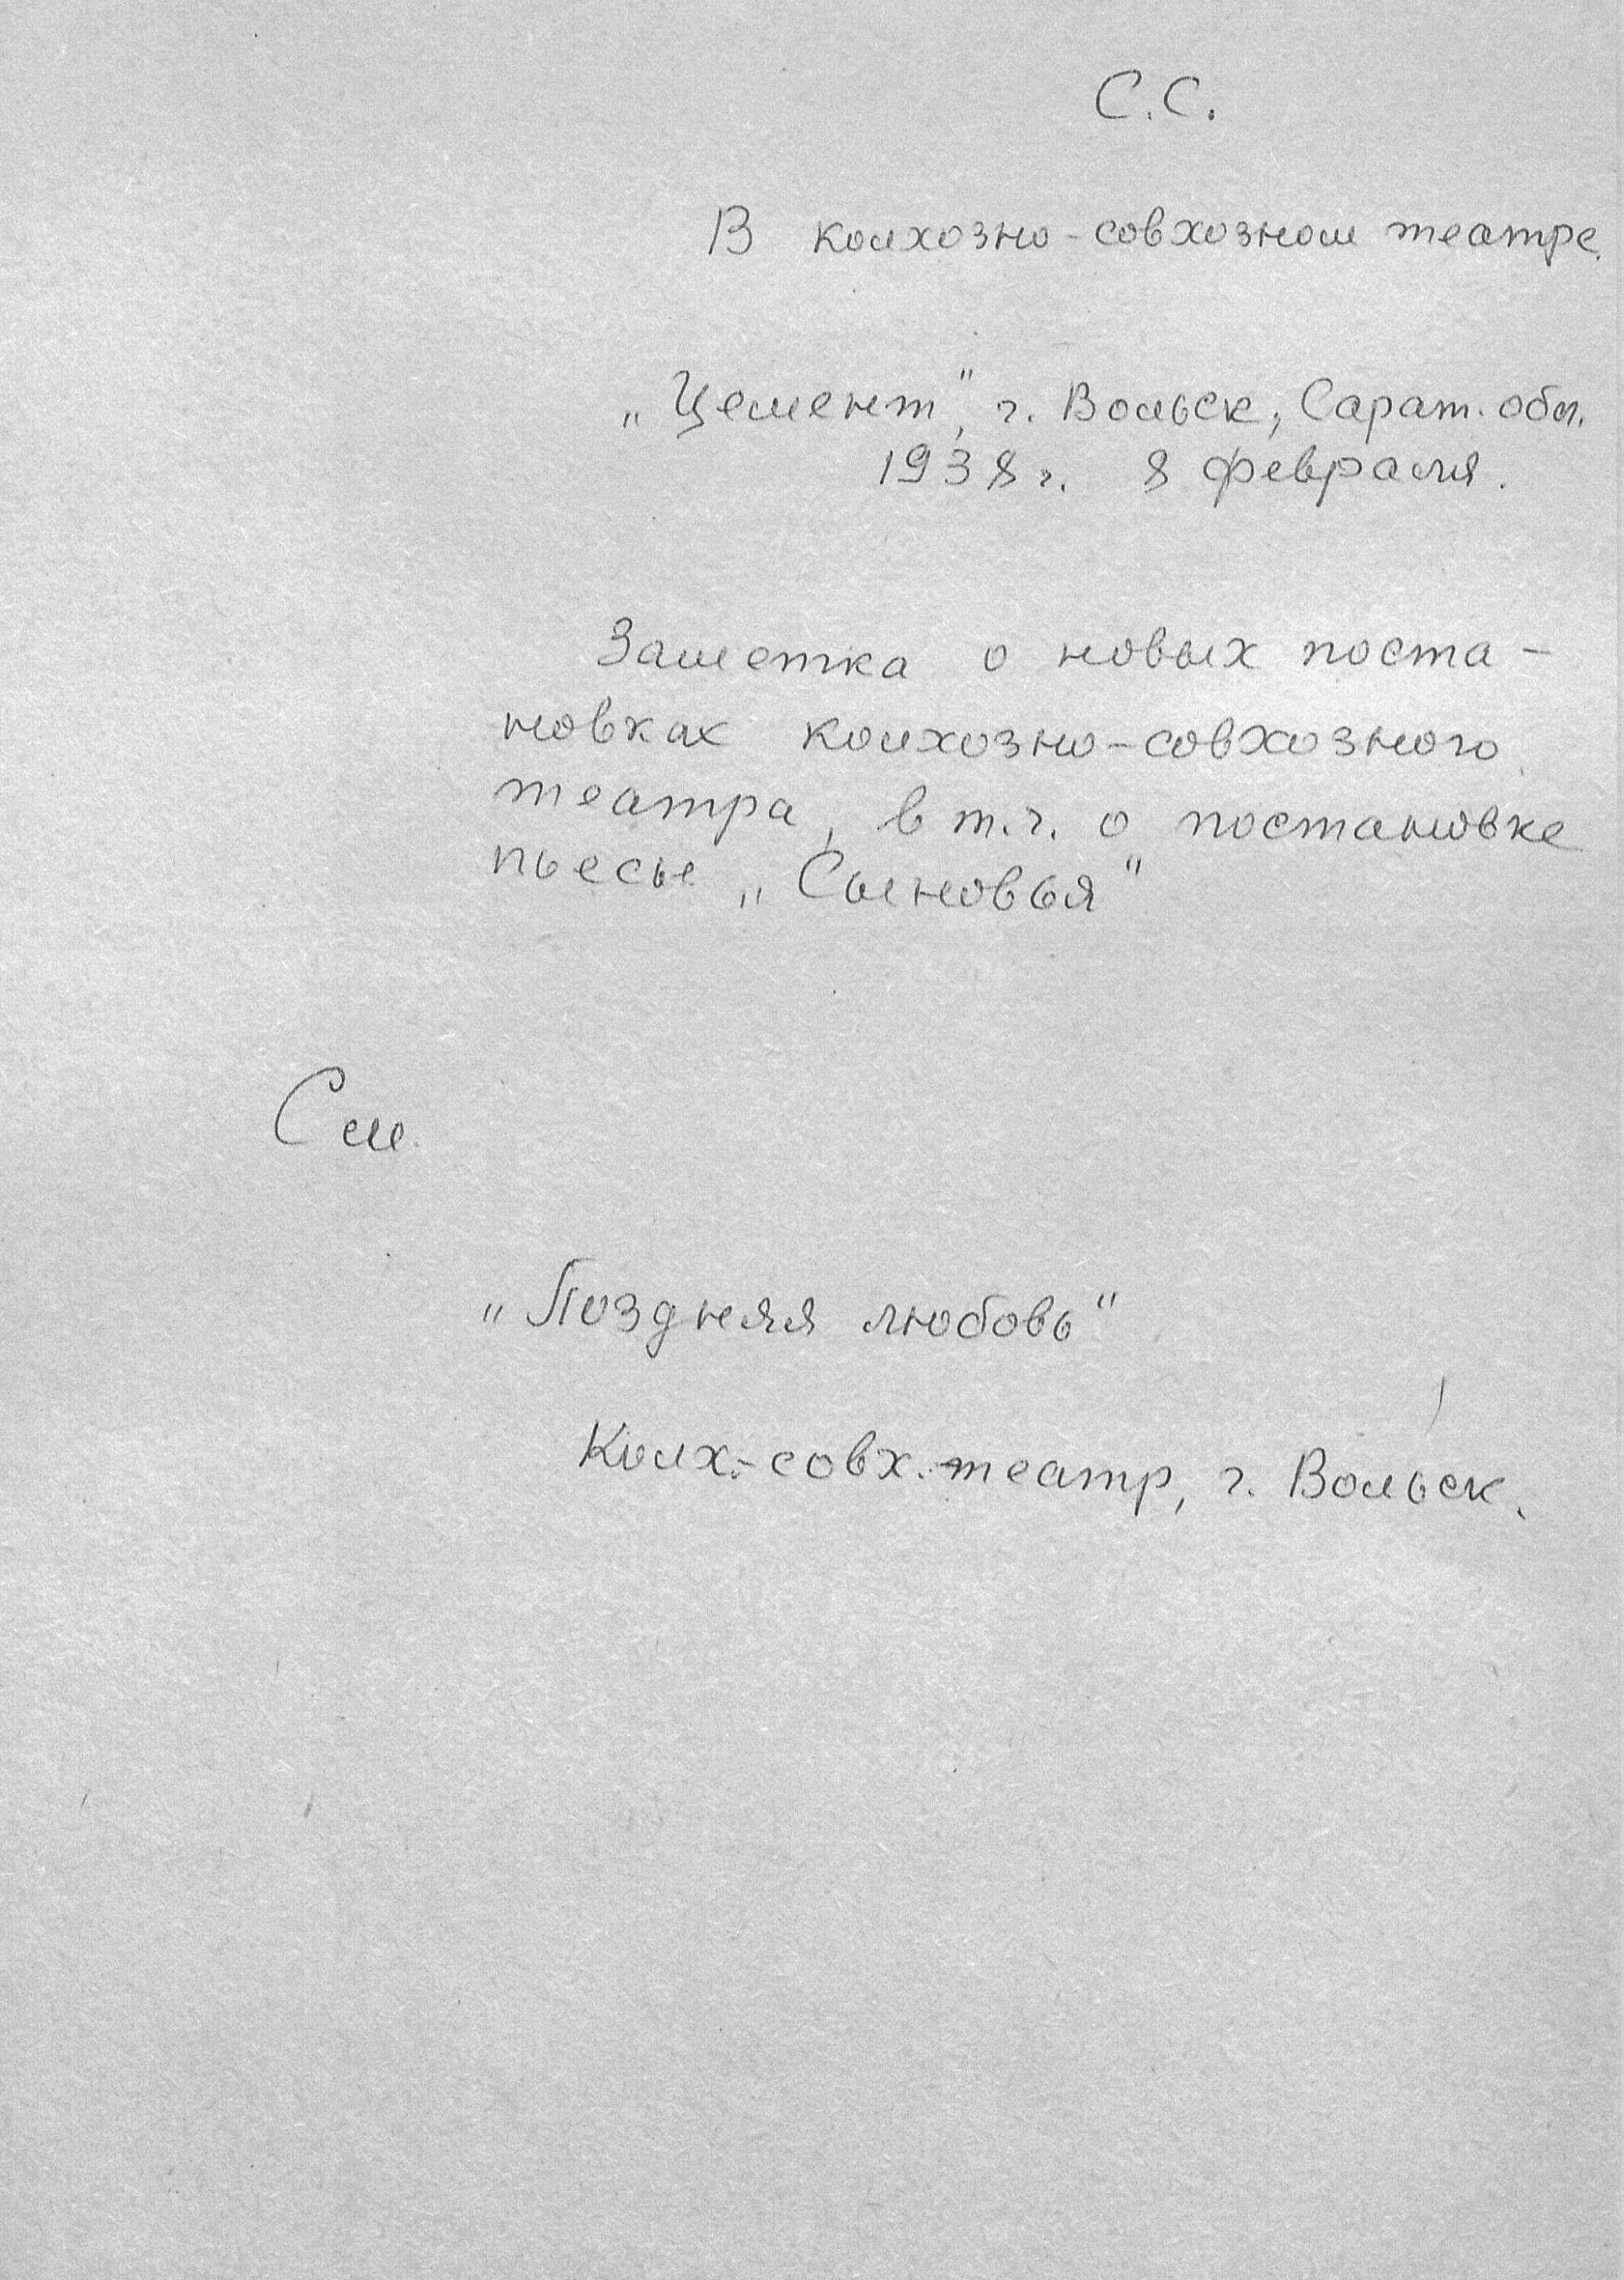 С.С.
В колхозно-совхозном театре.
„Цемент", г. Вольск, Сарат. обл.
1938 г. 8 февраля.
Заметка о новых поста-
новках колхозно-совхозного
театра, в т.ч. о постановке
пьесы „Сыновья"
См.
„Поздняя любовь"
Колх.-совх. театр, г. Вольск.